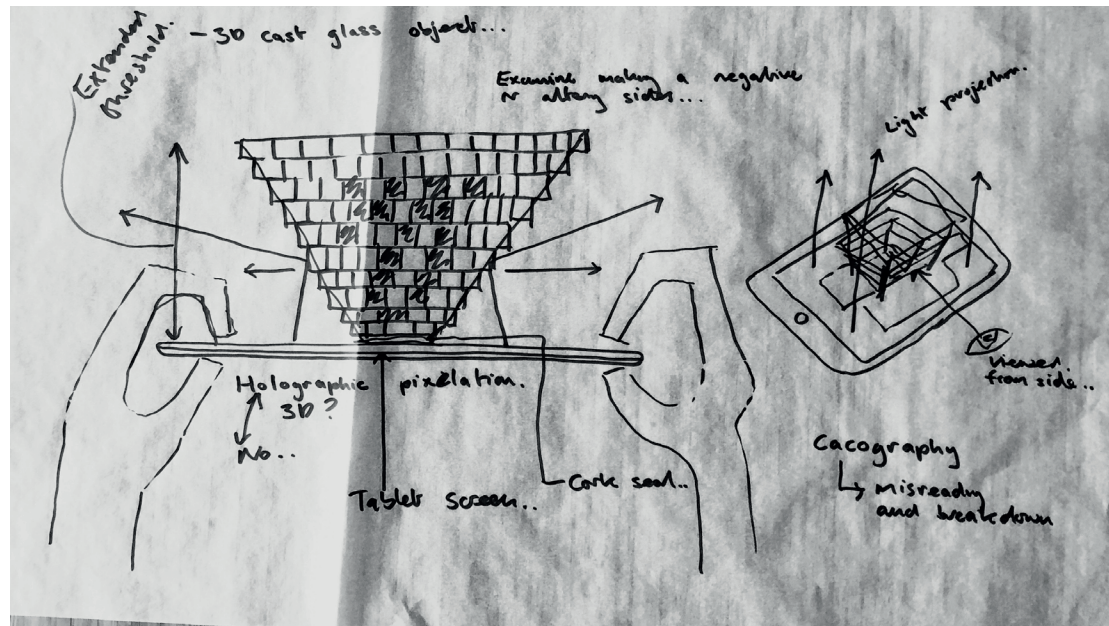 Extended
threshold.
- 3D cast glass object...
Examine making a negative
or altering sides...
Light projection.
Viewed
from side..
Holographic pixelation.
3D?
No..
Tablet screen..
Cork seal..
Cacography
misreading
and breakdown